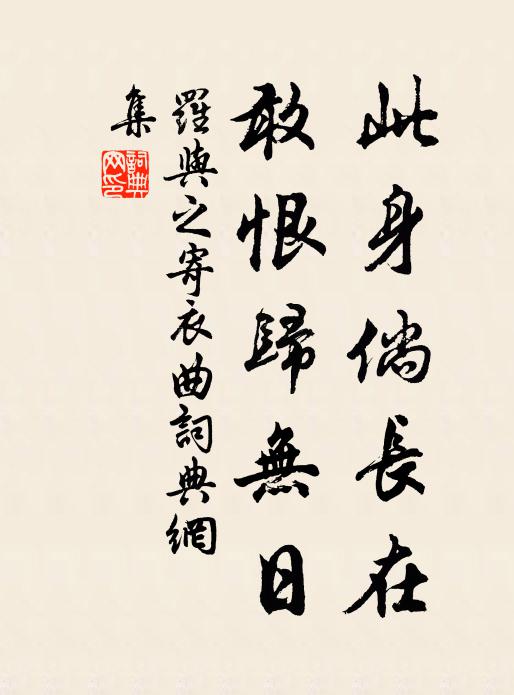 此身倘長在
敢恨歸無日
羅與之寄衣曲詞典網
集
詞典
网印